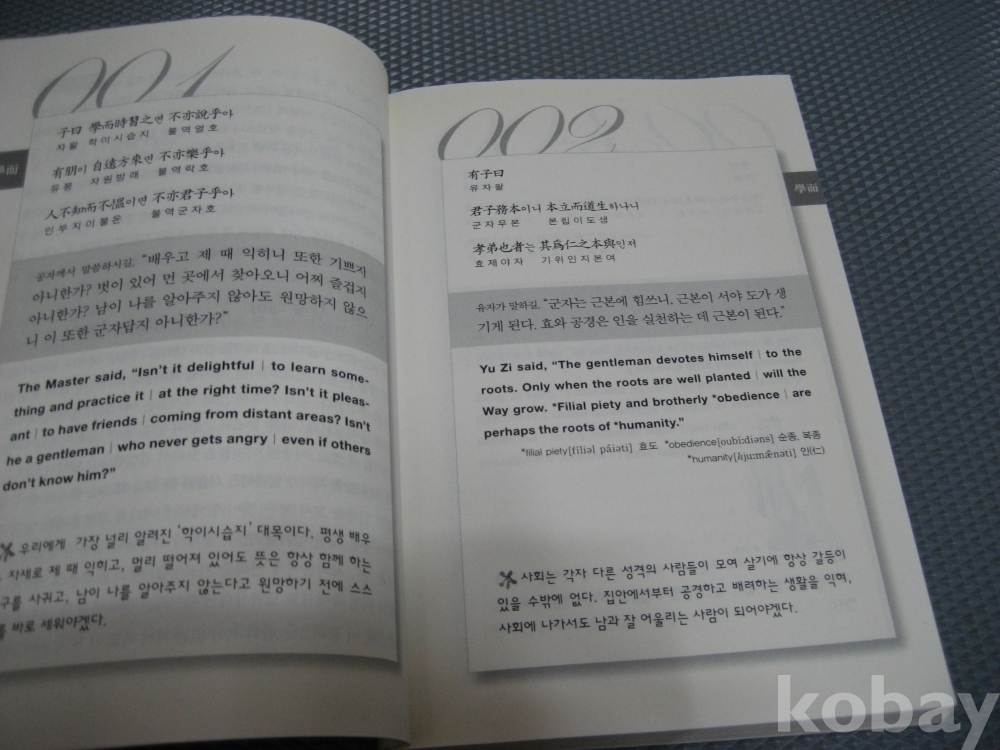 001
子曰 學而時習之면 不亦說乎아
자왈 학이시습지 불역열호
有朋이 自遠方來면 不亦樂乎아
유붕 자원방래 불역락호
人不知而不慍이면 不亦君子乎아
인부지이불온 불역군자호
공자께서 말씀하시길, “배우고 제 때 익히니 또한 기쁘지
아니한가? 벗이 있어 먼 곳에서 찾아오니 어찌 즐겁지
아니한가? 남이 나를 알아주지 않아도 원망하지 않으
니 이 또한 군자답지 아니한가?”
The Master said, “Isn’t it delightful | to learn some-
thing and practice it | at the right time? Isn’t it pleas-
ant | to have friends | coming from distant areas? Isn’t
he a gentleman | who never gets angry | even if others
don’t know him?”
우리에게 가장 널리 알려진 ‘학이시습지’ 대목이다. 평생 배우
자세로 제 때 익히고, 멀리 떨어져 있어도 뜻은 항상 함께 하는
구를 사귀고, 남이 나를 알아주지 않는다고 원망하기 전에 스스
를 바로 세워야겠다.
學而
002
有子曰
유자왈
君子務本이니 本立而道生하나니
군자무본 본립이도생
孝弟也者는 其爲仁之本與인저
효제야자 기위인지본여
유자가 말하길, “군자는 근본에 힘쓰니, 근본이 서야 도가 생
기게 된다. 효와 공경은 인을 실천하는 데 근본이 된다.”
Yu Zi said, “The gentleman devotes himself | to the
roots. Only when the roots are well planted | will the
Way grow. *Filial piety and brotherly *obedience | are
perhaps the roots of *humanity.”
*filial piety[filiəl páiəti] 효도 *obedience[oubi:diəns] 순종, 복종
*humanity[hju:mǽnəti] 인(仁)
사회는 각자 다른 성격의 사람들이 모여 살기에 항상 갈등이
있을 수밖에 없다. 집안에서부터 공경하고 배려하는 생활을 익혀,
사회에 나가서도 남과 잘 어울리는 사람이 되어야겠다.
學而
kobay